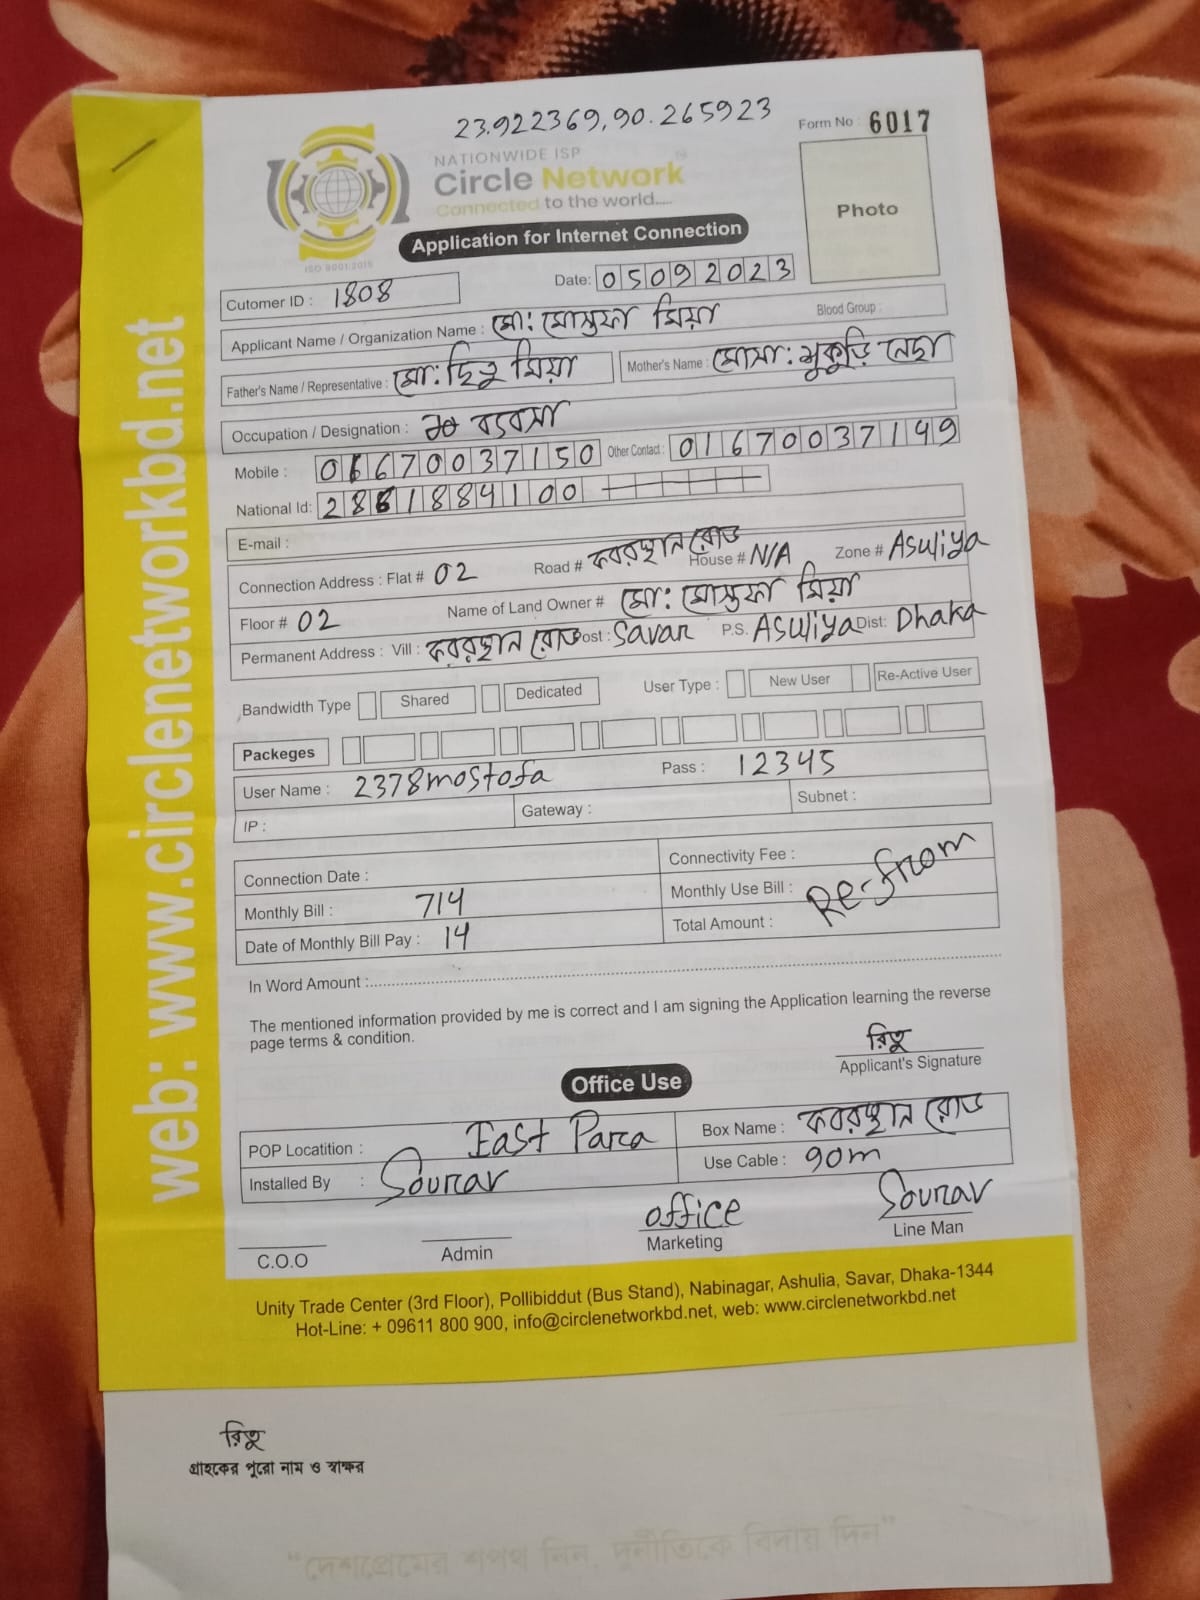 23.922369,90.265923
Form No : 6017
NATIONWIDE ISP
Circle Network
Connected to the world.....
ISO 9001:2015
Photo
Application for Internet Connection
Cutomer ID : 1808 Date: 05092023
Applicant Name / Organization Name : মো: মোস্তফা মিয়া Blood Group :
Father's Name / Representative : মো: ছিতু মিয়া Mother's Name : মোসা: নেছা
Occupation / Designation : ব্যবসা
Mobile : 01670037150 Other Contact : 01670037149
National Id: 2861884100
E-mail :
Connection Address : Flat # 02 Road # কবরস্থান রোড House # N/A Zone # Asuliya
Floor # 02 Name of Land Owner # মো: মোস্তফা মিয়া
Permanent Address : Vill : কবরস্থান রোড Post : Savar P.S. Asuliya Dist: Dhaka
Bandwidth Type Shared Dedicated User Type : New User Re-Active User
Packeges
User Name : 2378mostofa Pass : 12345
IP : Gateway : Subnet :
Connection Date : Connectivity Fee :
Monthly Bill : 714 Monthly Use Bill : Re-from
Date of Monthly Bill Pay : 14 Total Amount :
In Word Amount :
The mentioned information provided by me is correct and I am signing the Application learning the reverse
page terms & condition.
রিতু
Applicant's Signature
Office Use
POP Locatition : East Para Box Name : কবরস্থান রোড
Installed By : Sourav Use Cable : 90m
office Sourav
C.O.O Admin Marketing Line Man
Unity Trade Center (3rd Floor), Pollibiddut (Bus Stand), Nabinagar, Ashulia, Savar, Dhaka-1344
Hot-Line: + 09611 800 900, info@circlenetworkbd.net, web: www.circlenetworkbd.net
web: www.circlenetworkbd.net
রিতু
গ্রাহকের পুরো নাম ও স্বাক্ষর
“দেশপ্রেমের শপথ নিন, দুর্নীতিকে বিদায় দিন”